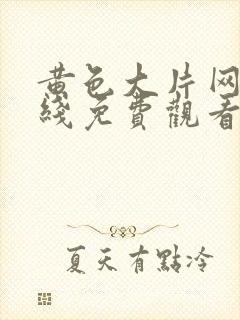 黄色大片网
綫免費觀看
夏天有點冷